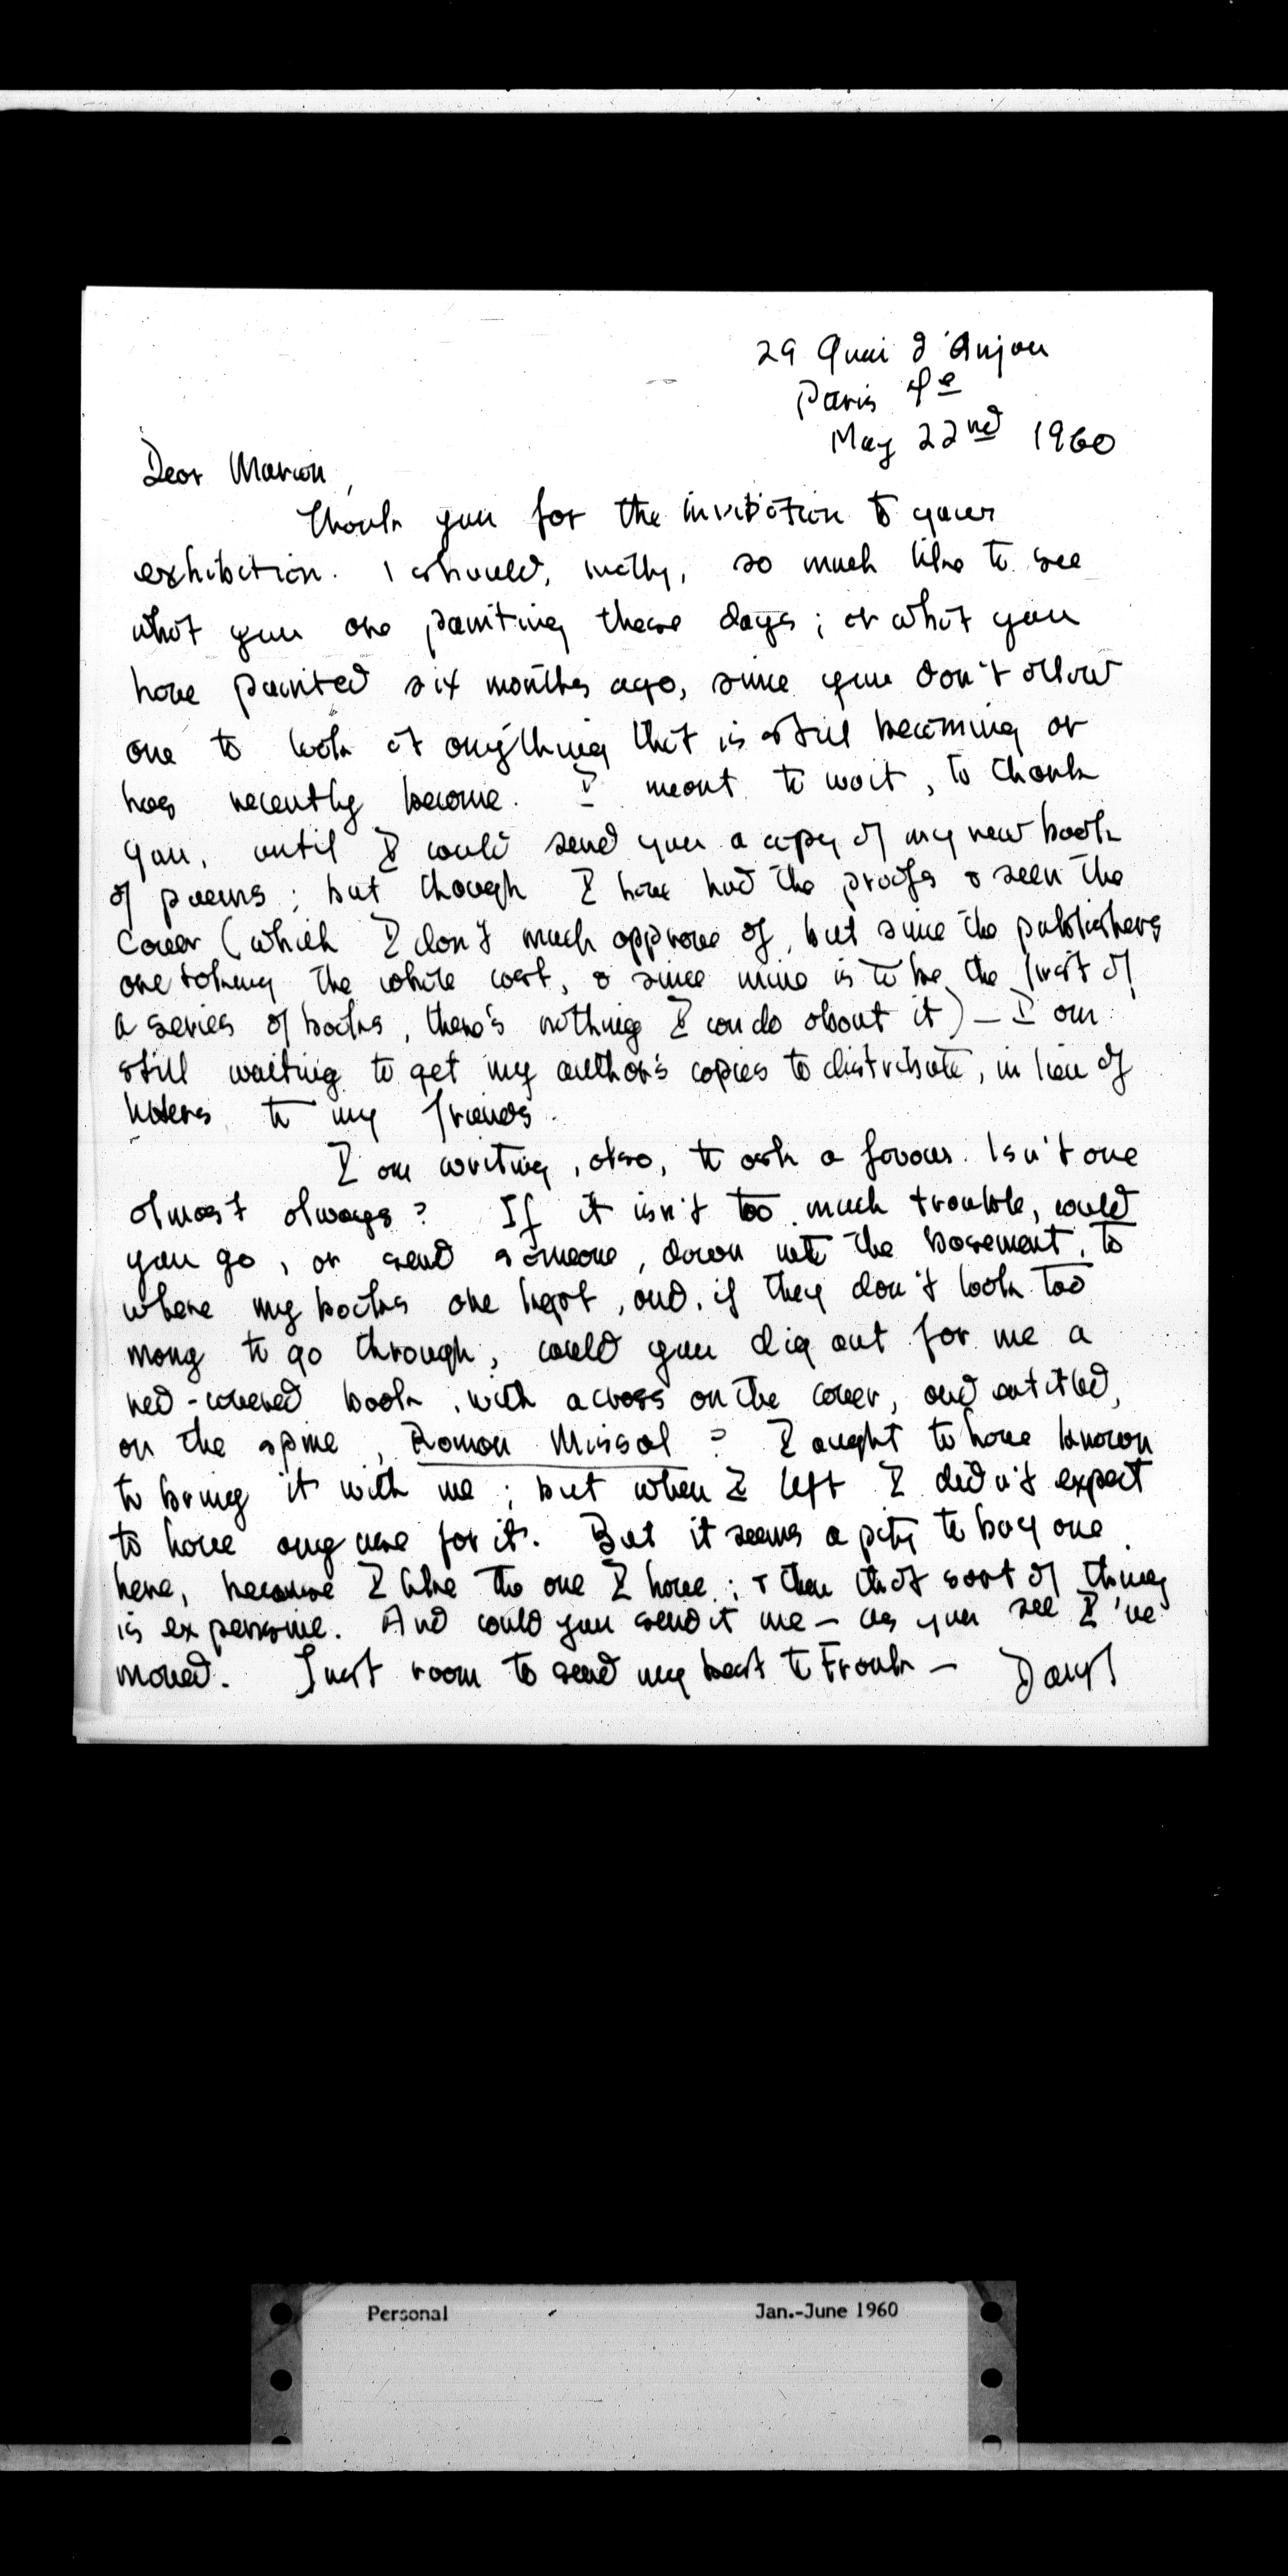 29 Quai d'Anjou
Paris 4e
May 22nd 1960
Dear Marion,
Thank you for the invitation to your
exhibition. I should, really, so much like to see
what you are painting these days; or what you
have painted six months ago, since you don't allow
one to look at anything that is still becoming or
has recently become. I meant to wait, to thank
you, until I could send you a copy of my new book
of poems; but though I have had the proofs & seen the
cover (which I don't much approve of, but since the publishers
are taking the whole cost, & since mine is to be the first of
a series of books, there's nothing I can do about it) — I am
still waiting to get my author's copies to distribute, in lieu of
letters to my friends.
I am writing, also, to ask a favour. Isn't one
almost always? If it isn't too much trouble, could
you go, or send someone, down into the basement, to
where my books are kept, and, if they don't look too
many to go through, could you dig out for me a
red-covered book, with a cross on the cover, and entitled,
on the spine, Roman Missal? I ought to have known
to bring it with me; but when I left I didn't expect
to have any use for it. But it seems a pity to buy one
here, because I like the one I have; & then that sort of thing
is expensive. And could you send it me — as you see I've
moved. Just room to send my best to Frank — Daryl
Personal Jan.-June 1960